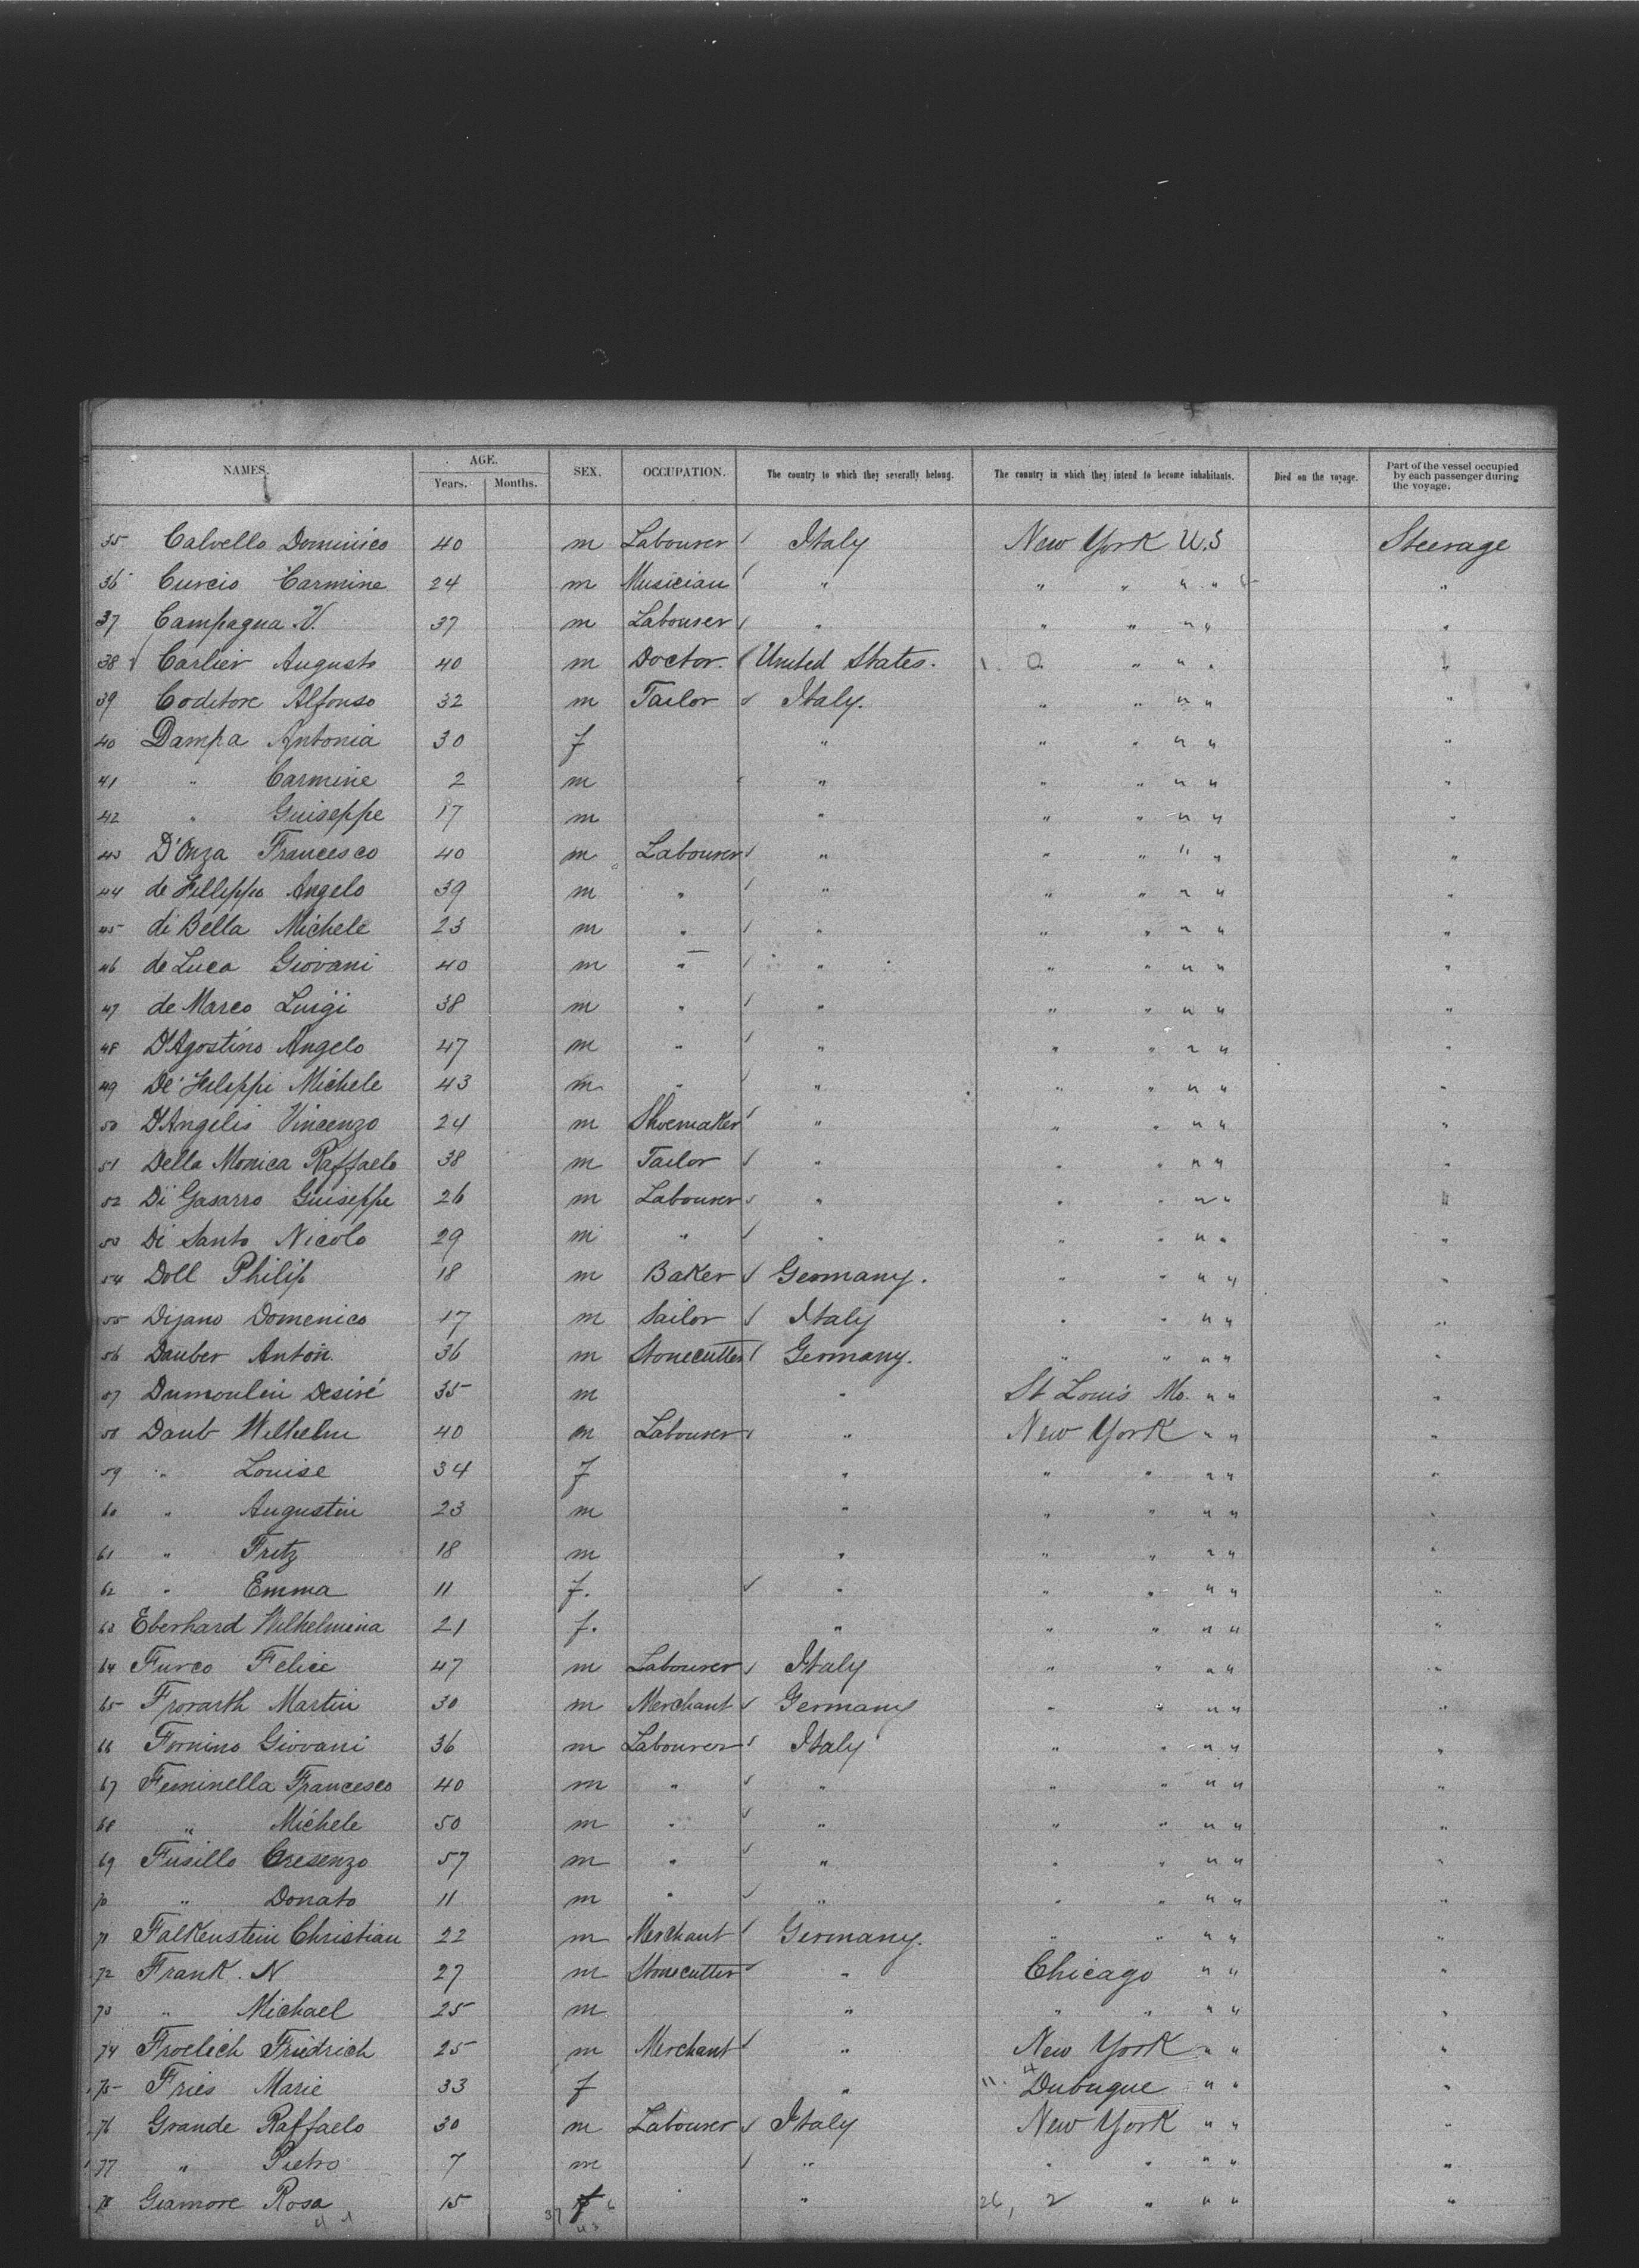 NAMES. AGE. SEX. OCCUPATION. The country to which they severally belong. The country in which they intend to become inhabitants. Died on the voyage. Part of the vessel occupied by each passenger during the voyage.
Years. Months.
35 Calvello Dominico 40 m Labourer Italy New York U.S Steerage
36 Curcio Carmine 24 m Musician " " " " " "
37 Campagua V. 37 m Labourer " " " " " "
38 Carlier Auguste 40 m Doctor. United States. " " " " "
39 Coditore Alfonso 32 m Tailor Italy. " " " " "
40 Dampa Antonia 30 f " " " " " "
41 " Carmine 2 m " " " " " "
42 " Guiseppe 17 m " " " " " "
43 D'Onza Francesco 40 m Labourer " " " " " "
44 de Fillippo Angelo 39 m " " " " " " "
45 di Bella Michele 23 m " " " " " " "
46 de Luca Giovani 40 m " " " " " " "
47 de Marco Luigi 38 m " " " " " " "
48 D'Agostino Angelo 47 m " " " " " " "
49 De Filippi Michele 43 m " " " " " " "
50 D'Angelis Vincenzo 24 m Shoemaker " " " " " "
51 Della Monica Raffaelo 38 m Tailor " " " " " "
52 Di Gasarro Guiseppe 26 m Labourer " " " " " "
53 Di Santo Nicolo 29 m " " " " " " "
54 Doll Philip 18 m Baker Germany. " " " " "
55 Dijano Domenico 17 m Sailor Italy " " " " "
56 Dauber Anton. 36 m Stonecutter Germany. " " " " "
57 Dumoulin Desiré 35 m " St Louis Mo. " " "
58 Daub Wilhelm 40 m Labourer " New York " " "
59 " Louise 34 f " " " " " "
60 " Augustin 23 m " " " " " "
61 " Fritz 18 m " " " " " "
62 " Emma 11 f. " " " " " "
63 Eberhard Wilhelmina 21 f. " " " " " "
64 Furco Felice 47 m Labourer Italy " " " " "
65 Frorarth Martin 30 m Merchant Germany " " " " "
66 Fornino Giovani 36 m Labourer Italy " " " " "
67 Feminella Francesco 40 m " " " " " " "
68 " Michele 50 m " " " " " " "
69 Fusillo Cresenzo 57 m " " " " " " "
70 " Donato 11 m " " " " " " "
71 Falkenstein Christian 22 m Merchant Germany. " " " " "
72 Frank. N 27 m Stonecutter " Chicago " " "
73 " Michael 25 m " " " " " "
74 Froelich Friedrich 25 m Merchant " New York " " "
75 Fries Marie 33 f " 11. Dubuque " " "
76 Grande Raffaelo 30 m Labourer Italy New York " " "
77 " Pietro 7 m " " " " " "
78 Giamore Rosa 15 f " 26, 2 " " " "